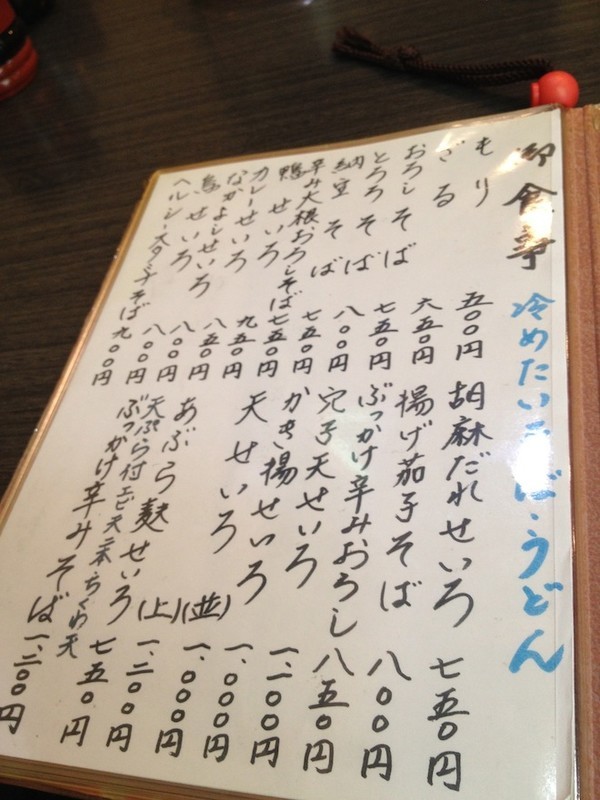 御食事 冷めたいそば・うどん
もり 五〇〇円
ざる 六五〇円
おろしそば 七五〇円
とろろそば 八〇〇円
納豆そば 七五〇円
辛み大根おろしそば 七五〇円
鴨せいろ 九五〇円
カレーせいろ 八五〇円
なかよしせいろ 八〇〇円
鳥せいろ 八〇〇円
ヘルシースタミナそば 九〇〇円
胡麻だれせいろ 七五〇円
揚げ茄子そば 八〇〇円
ぶっかけ辛みおろし 八五〇円
穴子天せいろ 一、一〇〇円
かき揚せいろ 一、〇〇〇円
天せいろ (並) 一、〇〇〇円
(上) 一、二〇〇円
あぶら麩せいろ 七五〇円
天ぷら付エビ天二本ちくわ天
ぶっかけ辛みそば 一、二〇〇円